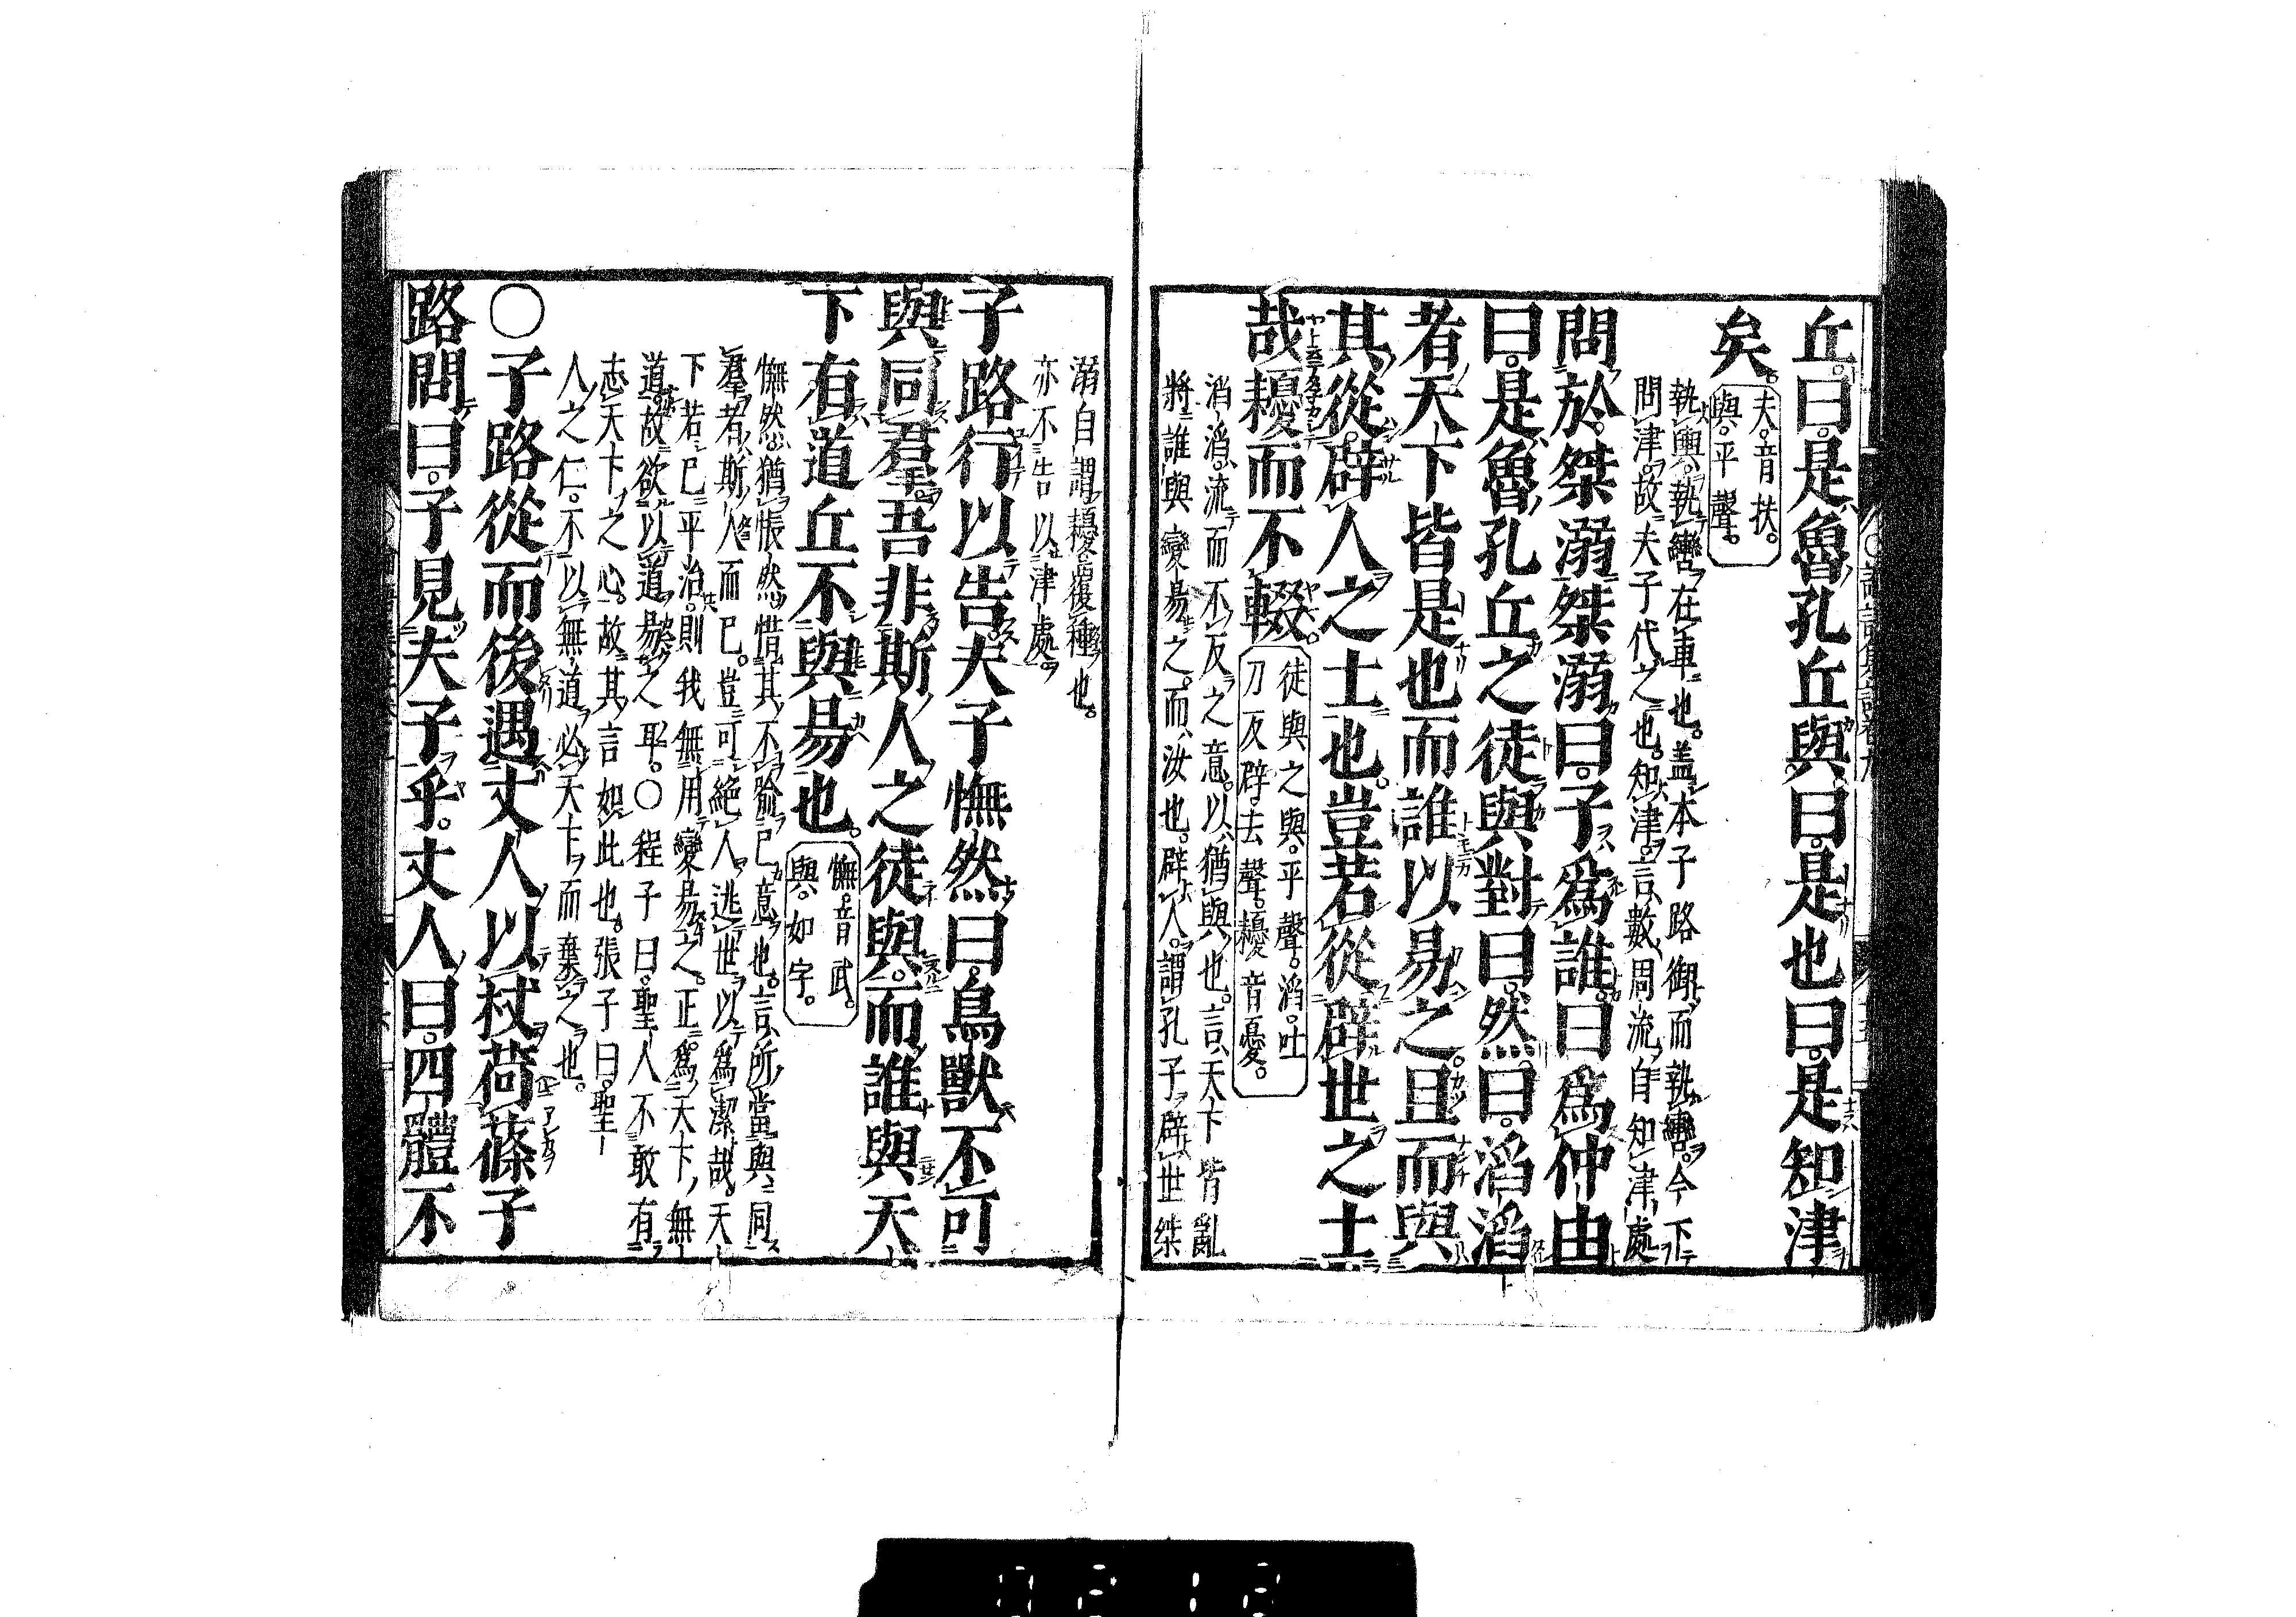 丘。曰。是魯孔丘與。曰。是也曰。是知津
矣。夫。音扶。
與。平聲。
執輿。執轡在車也。蓋本子路御而執轡。今下
問津。故夫子代之也。知津。言數周流。自知津處
問於桀溺桀溺曰。子爲誰。曰爲仲由
曰。是魯孔丘之徒與對曰。然。曰。滔滔
者天下皆是也而誰以易之。且而與
其從辟人之士也。豈若從辟世之士
哉耰而不輟。徒與之與。平聲。滔。吐
刀反辟。去聲。耰音憂。
滔滔。流而不反之意。以。猶與也。言天下皆亂
將誰與變易之。而、汝也。辟人。謂孔子。辟世桀
溺自謂。耰。覆種也。
亦不告以津處。
子路行以告。夫子憮然曰。鳥獸不可
與同羣。吾非斯人之徒與。而誰與天
下有道丘不與易也。憮。音武。
與。如字。
憮然。猶悵然。惜其不喻己意也。言所當與同
羣者。斯人而已。豈可絶人逃世以爲潔哉。天
下若已平治。則我無用變易之。正爲天下無
道。故欲以道易之耳。〇程子曰。聖人不敢有
忘天下之心。故其言如此也。張子曰。聖
人之仁。不以無道必天下而棄之也。
〇子路從而後遇丈人以杖荷蓧子
路問曰。子見夫子乎。丈人曰。四體不